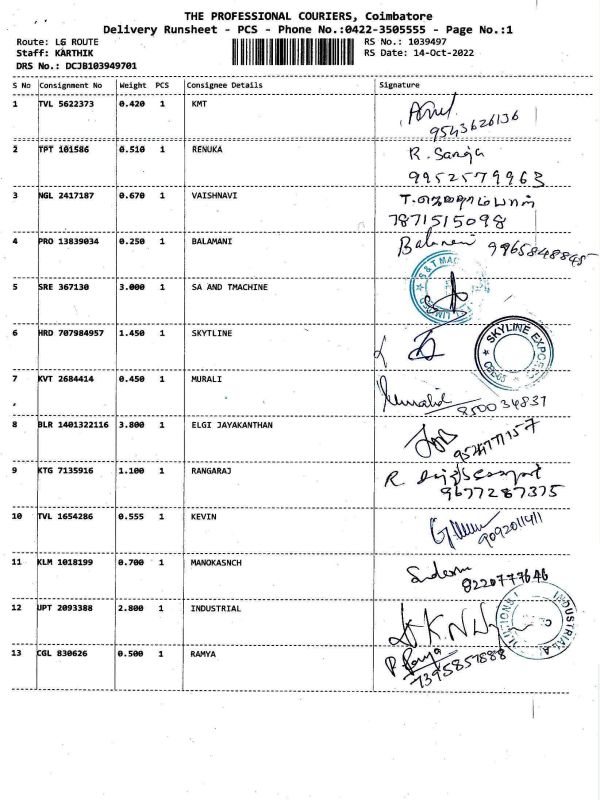 THE PROFESSIONAL COURIERS, Coimbatore
Delivery Runsheet - PCS - Phone No.:0422-3505555 - Page No.:1
Route: LG ROUTE RS No.: 1039497
Staff: KARTHIK RS Date: 14-Oct-2022
DRS No.: DCJB103949701
S No Consignment No Weight PCS Consignee Details Signature
1 TVL 5622373 0.420 1 KMT
9543626136
2 TPT 101586 0.510 1 RENUKA R. Saroja
9952579963
3 NGL 2417187 0.670 1 VAISHNAVI
7871515098
4 PRO 13839034 0.250 1 BALAMANI Balamani 9965848845
5 SRE 367130 3.000 1 SA AND TMACHINE S & T
6 HRD 707984957 1.450 1 SKYTLINE SKYLINE
7 KVT 2684414 0.450 1 MURALI
8 BLR 1401322116 3.800 1 ELGI JAYAKANTHAN
9524771157
9 KTG 7135916 1.100 1 RANGARAJ R
9677287375
10 TVL 1654286 0.555 1 KEVIN
9092011411
11 KLM 1018199 0.700 1 MANOKASNCH
8220777646
12 UPT 2093388 2.800 1 INDUSTRIAL
13 CGL 830626 0.500 1 RAMYA P. Ramya
7395857888